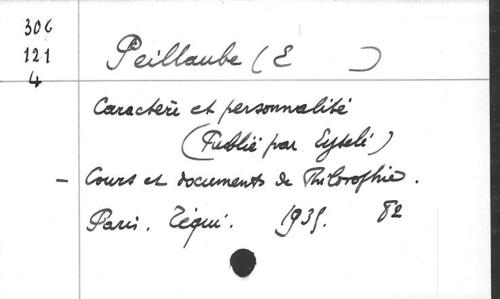 306
121
4
Peillaube (E )
Caractère et personnalité
(Publié par Eyselé)
- Cours et documents de Philosophie.
Paris. Téqui. 1935. 82